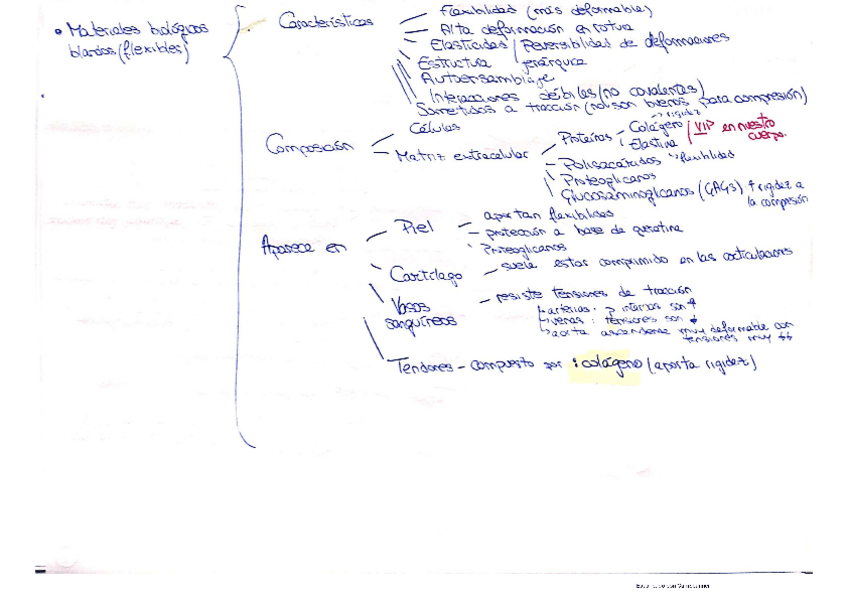 • Materiales biológicos
blandos (flexibles)
Características
Flexibilidad (más deformable)
Alta deformación en rotura
Elasticidad / Reversibilidad de deformaciones
Estructura jerárquica
Autoensamblaje
Interacciones débiles (no covalentes)
Sometidos a tracción (no son buenos para compresión)
Composición
Células
Matriz extracelular
Proteínas
→ rigidez
Colágeno
Elastina
→ flexibilidad
VIP en nuestro
cuerpo.
Polisacáridos
Proteoglicanos
Glucosaminoglicanos (GAGs) ↑ rigidez a
la compresión
Aparece en
Piel
aportan flexibilidad
protección a base de queratina
Proteoglicanos
Cartílago
suele estar comprimido en las articulaciones
Vasos
sanguíneos
resiste tensiones de tracción
arterias: P internas son ↑
venas: tensiones son ↓
aorta ascendente muy deformable con
tensiones muy ↓↓
Tendones - compuesto por: colágeno (aporta rigidez)